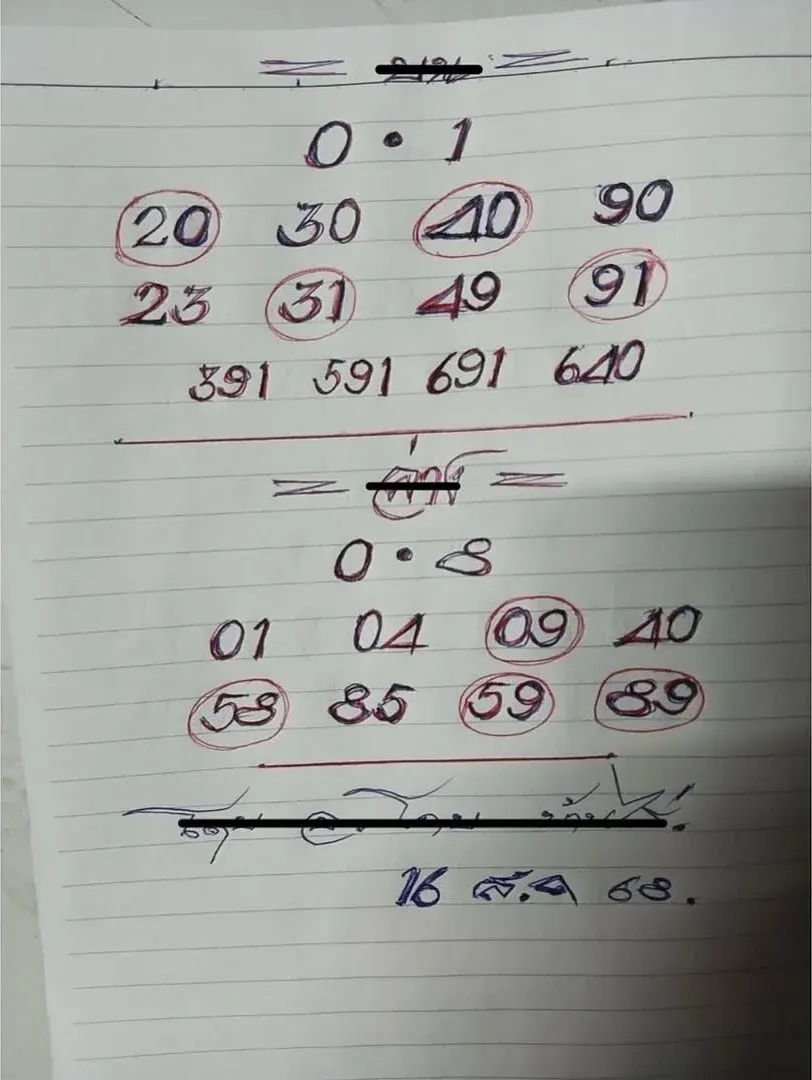 0 • 1
20 30 40 90
23 31 49 91
391 591 691 640
= ล่าง =
0 • 8
01 04 09 40
58 85 59 89
16 ส.ค 68.